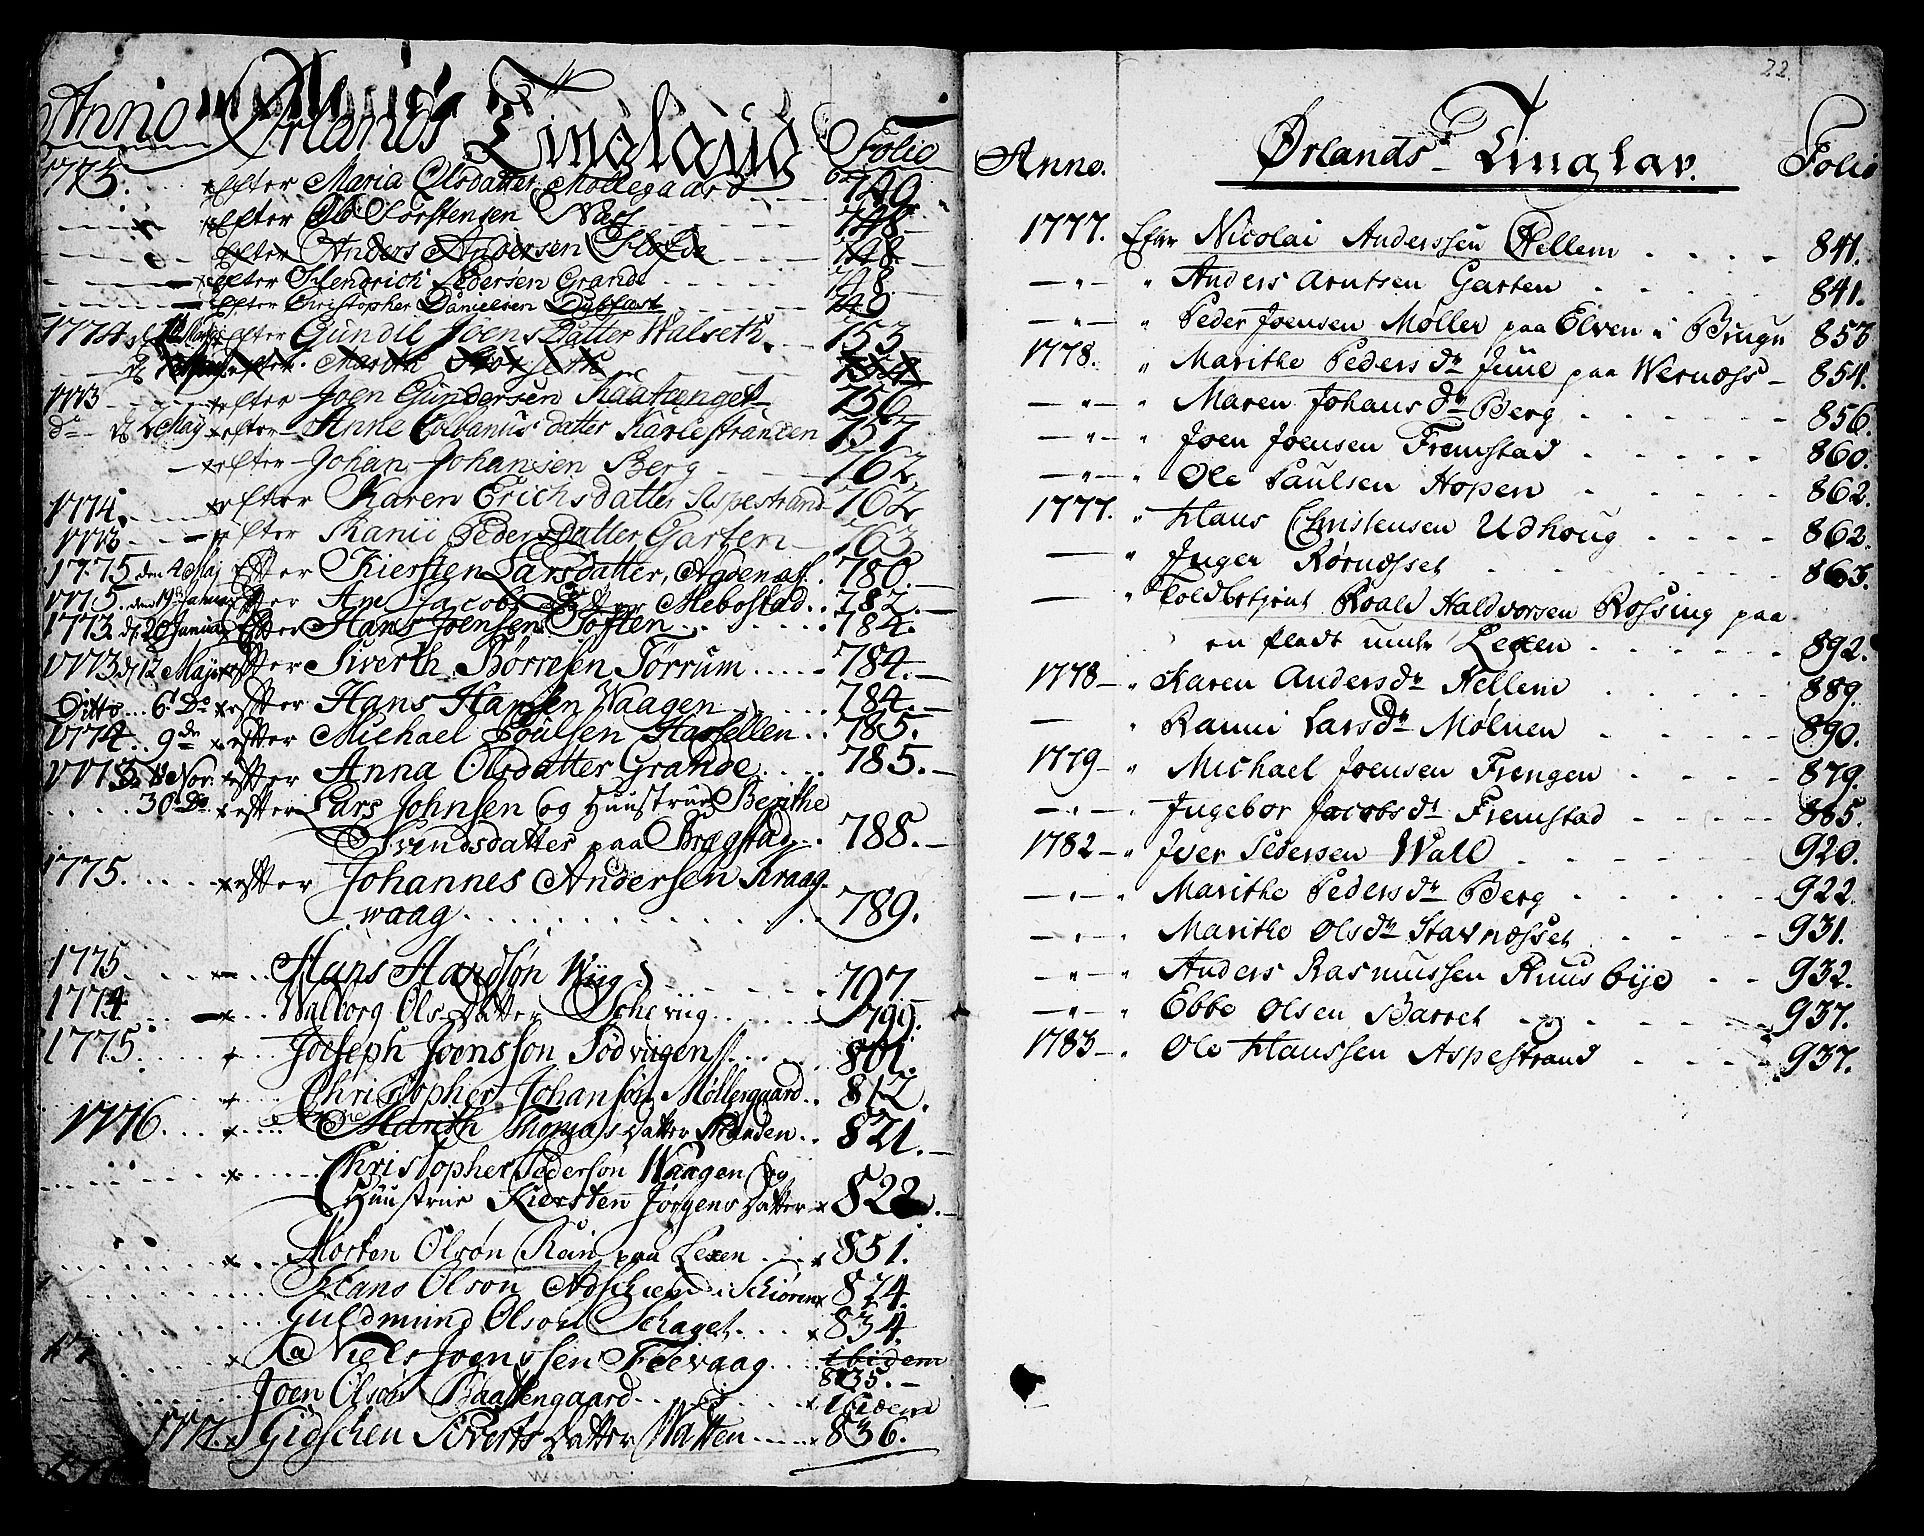 Anno Ørlands Tinglaug Folio
1775. Efter Maria Olsdatter Møllegaard 749.
Efter Ole Torstensen Næss 748.
Efter Anders Andersen 748.
Efter Hendrich Pedersen Grande 748.
Efter Christopher Danielsen 749
1774 Efter Gundil Joens Datter Walseth. 753
efter Marith
1773 efter Joen Gundersen Raatanget 756
do 4 May efter Anne Colbanus datter Karlestranden 757
efter Johan Johansen Berg 762
1774. efter Karen Erichsdatter Aspestrand 762
1773 efter Ranii Pedersdatter Garten 763
1775 den 4 Maj Efter Kiersten Larsdatter, Agdenæss. 780.
1775. den 19 Januar Efter Ane Jacobs Datter Mebostad. 782.
1773. d. 20 Januar Efter Hans Joensen Toften 784.
1773 d. 12 Maj efter Siverth Børresen Tørrum 784.
Ditto 6 Do efter Hans Hansen Waagen 784.
1774. 9de efter Michael Poulsen Hassellen 785.
1773. 8 Nov. efter Anna Olsdatter Grande 785.
30 Do efter Lars Johnsen og Huustrue Berithe
Svendsdatter paa Bragstad 788.
1775. efter Johannes Andersen Kraag-
waag 789.
1775 Hans Handsøn Wiig 797
1774 Walborg Ols Datter Scheviig 799.
1775 Joseph Joensson Sodviigen 801.
Christopher Johansøn Møllergaard 812.
1776 Marith Thomæs Datter Stranden 821.
Christopher Pedersøn Waagen og
Huustrue Kiersten Jørgens Datter 822.
Morten Olsøn Rein paa Lexen 851.
Hans Olsøn i Schiøren 874.
Guldmund Olsøn Schaget 834.
Niels Joenssen Feevaag ibidem
835.
Joen Olsøn Baattengaard ibidem
1777. Gidschen Siverts Datter Watten 836.
22.
Anno. Ørlands Tinglav. Folio
1777. Efter Nicolai Anderssen Hellem 841.
" Anders Arntsen Garten 841.
" Peder Joensen Møller paa Elven i Brugn 853
1778. " Marithe Peders dr Juul paa Wernæss 854.
" Maren Johans dr Berg 856.
" Joen Joensen Fremstad 860.
" Ole Paulsen Hopen 862.
1777. " Hans Christensen Udhoug 862.
" Inger Rørnæsset 863.
" Toldbetjent Roald Haldvorsen Rossing paa
en pladt under Lexen 892.
1778 " Karen Anders dr Hellem 889.
" Ranni Lars dr Mølnen 890.
1779 " Michael Joensen Frengen 879.
" Ingebor Jacobs dr Fremstad 885.
1782 " Iver Pedersen Wall 920.
" Marithe Peders dr Berg 922.
" Marithe Ols dr Stavnæsset 931.
" Anders Rasmussen Kruusbye 932.
" Ebbe Olsen Barret 937.
1783 " Ole Hanssen Aspestrand 937.